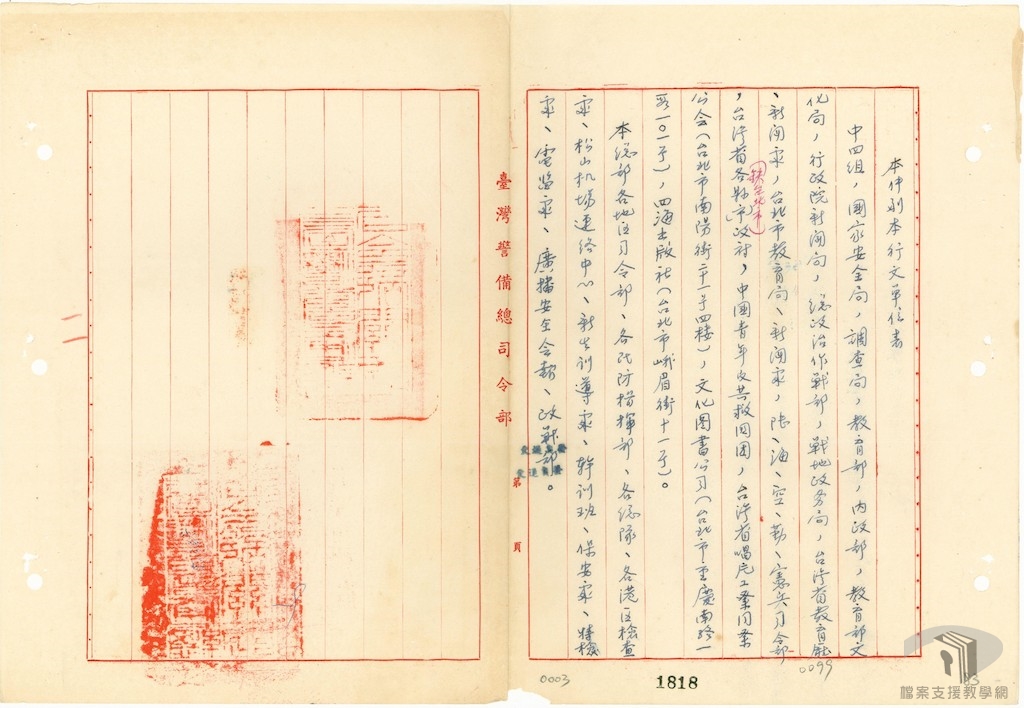 本件副本行文單位表
中四組，國家安全局，調查局，教育部，內政部，教育部文
化局，行政院新聞局，總政治作戰部，戰地政务局，台湾省教育廳
、新聞處，台北市教育局、新聞處，陸、海、空、勤、憲兵司令部
，台湾省各縣（市）政府，中國青年反共救國團，台湾省唱片工業同業
公会（台北市南陽街二十一号四楼），文化图書公司（台北市重慶南路一
段一〇一号），四海出版社（台北市峨眉街十一号）。
本總部各地区司令部、各防指揮部、各總隊、各港区檢查
處、松山机場連絡中心、新生訓導處、幹訓班、保安處、特檢
處、電監處、廣播安全会報、政戰部。
臺灣警備總司令部
第 頁
0003
1818
0099
檔案支援教學網